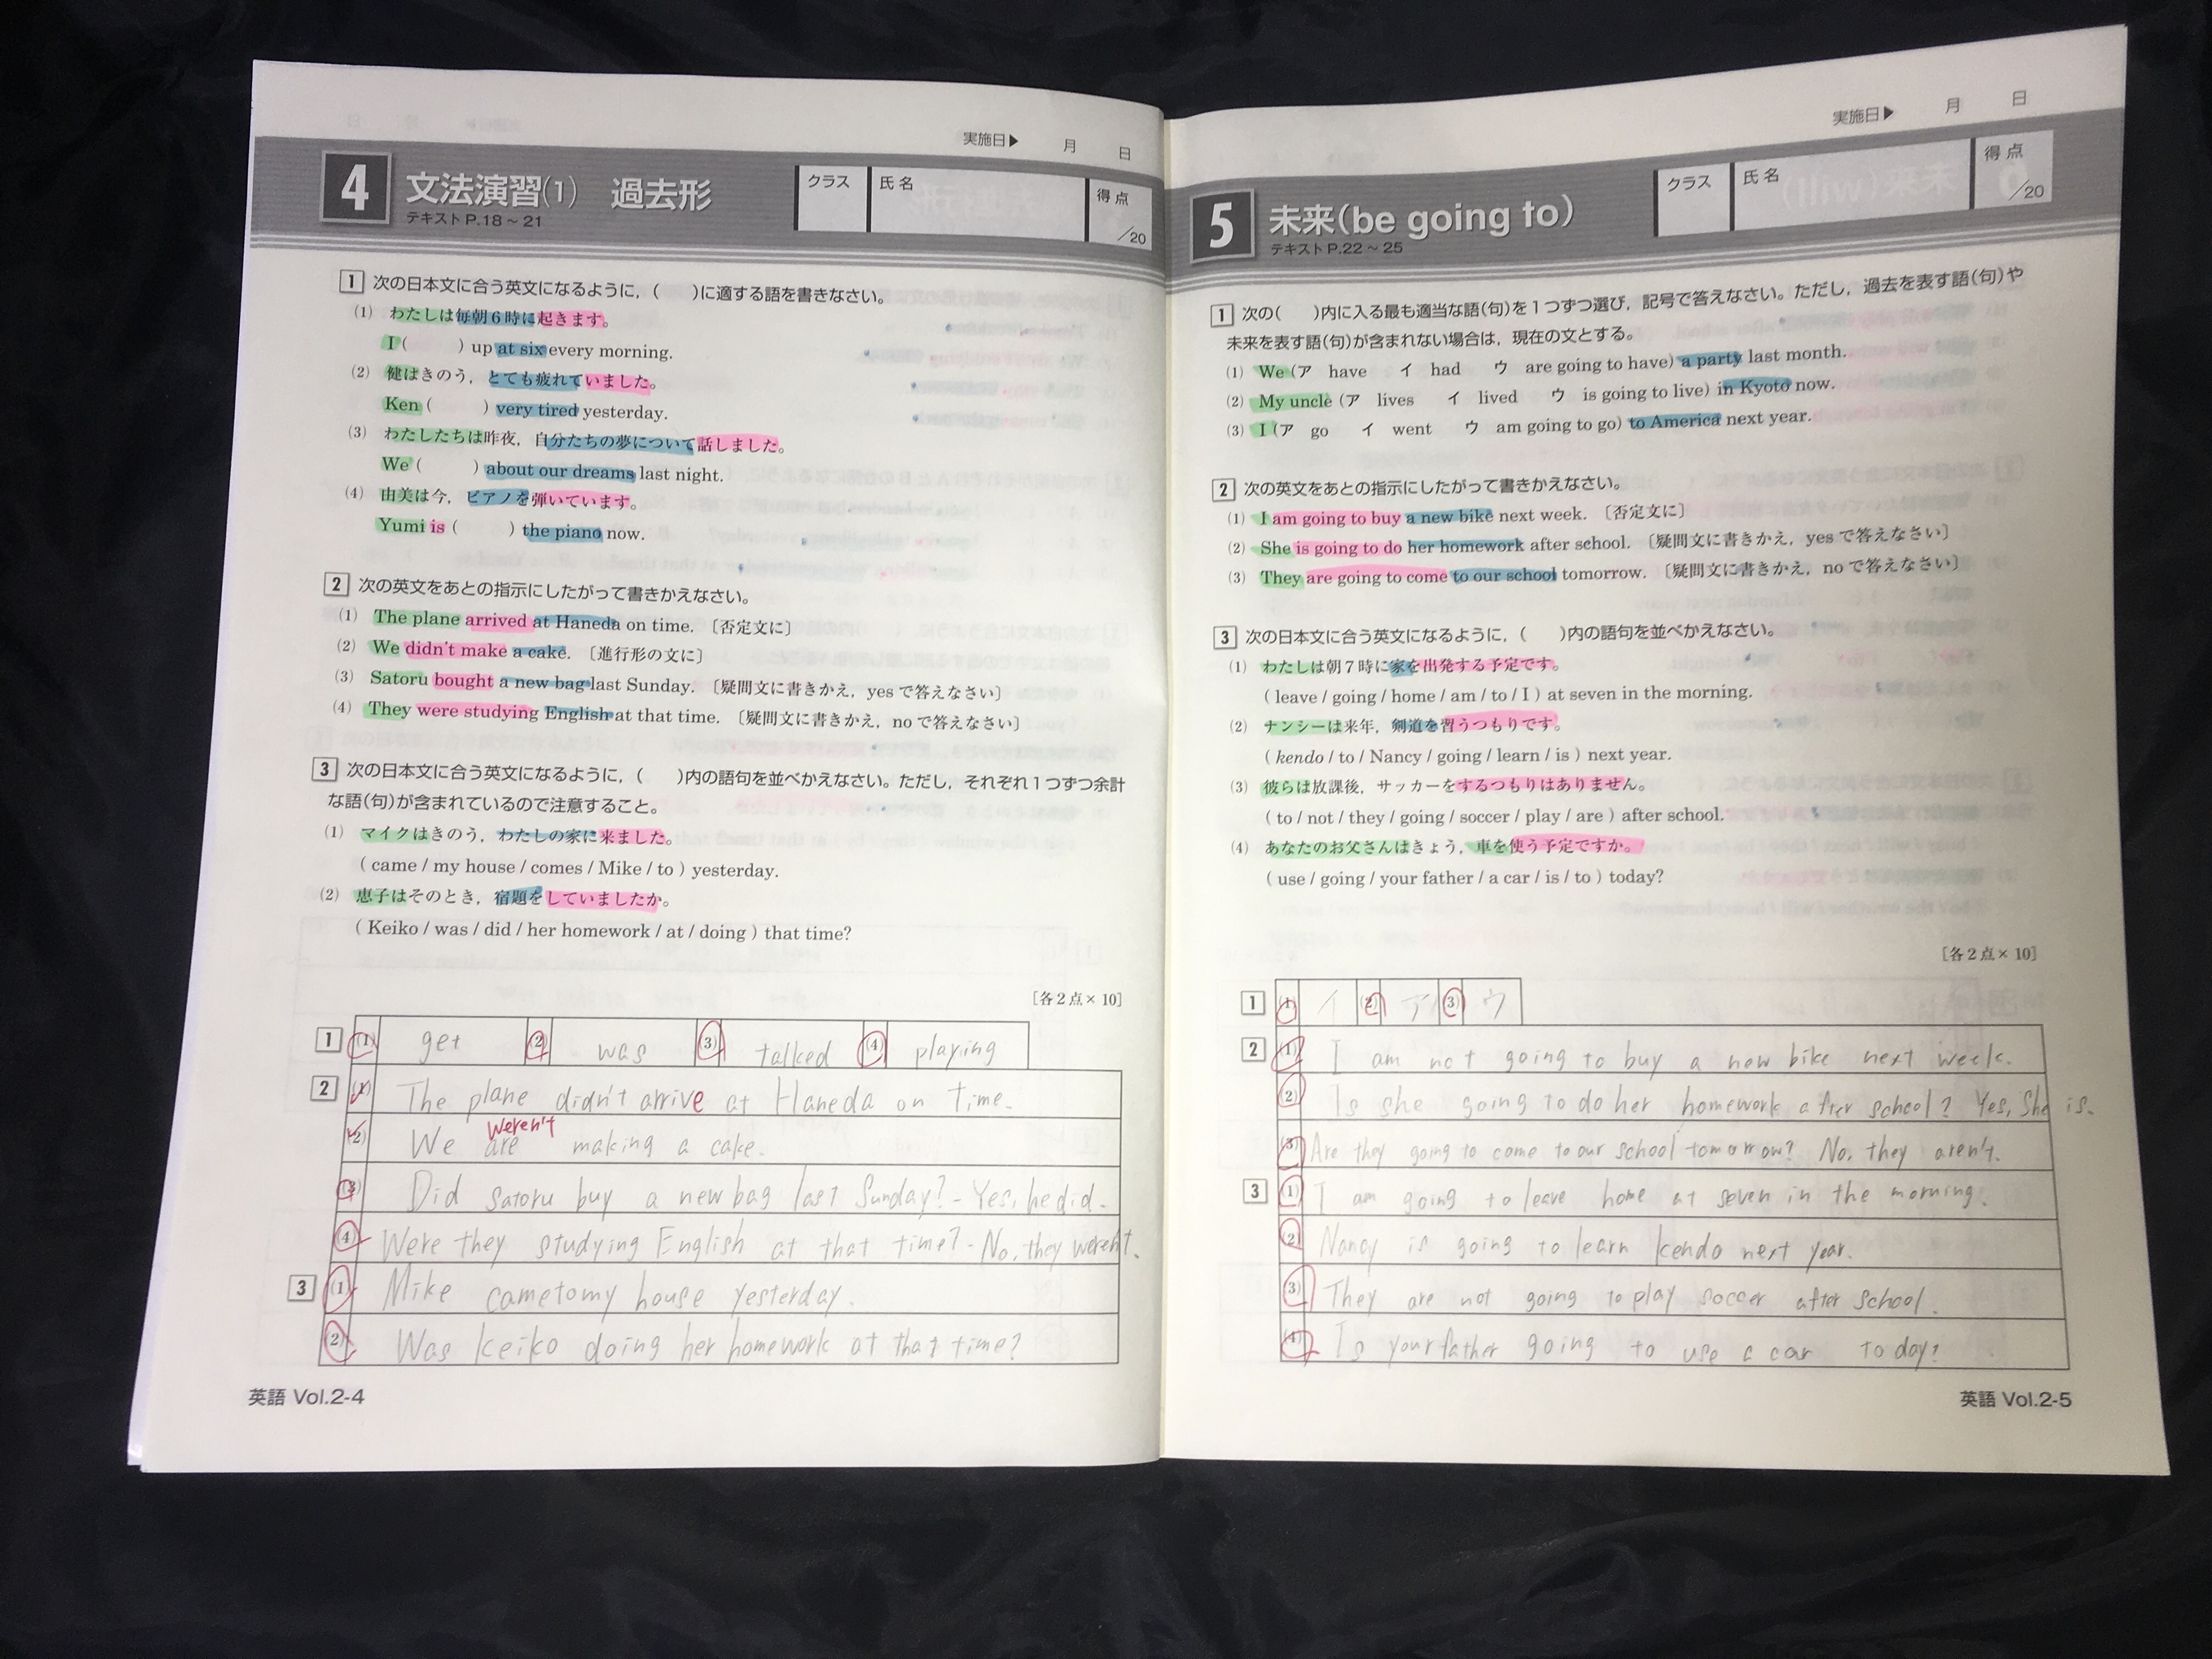 実施日▶ 月 日
4 文法演習(1) 過去形
テキストP.18～21
クラス 氏名 得点 /20
1 次の日本文に合う英文になるように，( )に適する語を書きなさい。
(1) わたしは毎朝6時に起きます。
I ( ) up at six every morning.
(2) 健はきのう，とても疲れていました。
Ken ( ) very tired yesterday.
(3) わたしたちは昨夜，自分たちの夢について話しました。
We ( ) about our dreams last night.
(4) 由美は今，ピアノを弾いています。
Yumi is ( ) the piano now.
2 次の英文をあとの指示にしたがって書きかえなさい。
(1) The plane arrived at Haneda on time. 〔否定文に〕
(2) We didn't make a cake. 〔進行形の文に〕
(3) Satoru bought a new bag last Sunday. 〔疑問文に書きかえ，yesで答えなさい〕
(4) They were studying English at that time. 〔疑問文に書きかえ，noで答えなさい〕
3 次の日本文に合う英文になるように，( )内の語句を並べかえなさい。ただし，それぞれ1つずつ余計
な語(句)が含まれているので注意すること。
(1) マイクはきのう，わたしの家に来ました。
( came / my house / comes / Mike / to ) yesterday.
(2) 恵子はそのとき，宿題をしていましたか。
( Keiko / was / did / her homework / at / doing ) that time?
［各2点×10］
1 (1) get (2) was (3) talked (4) playing
2 (1) The plane didn't arrive at Haneda on time.
weren't
(2) We are making a cake.
(3) Did satoru buy a new bag last Sunday? - Yes, he did.
(4) Were they studying English at that time? - No, they weren't.
3 (1) Mike came to my house yesterday.
(2) Was keiko doing her homework at that time?
英語 Vol.2-4
実施日▶ 月 日
5 未来(be going to)
テキストP.22～25
クラス 氏名 得点 /20
1 次の( )内に入る最も適当な語(句)を1つずつ選び，記号で答えなさい。ただし，過去を表す語(句)や
未来を表す語(句)が含まれない場合は，現在の文とする。
(1) We (ア have イ had ウ are going to have) a party last month.
(2) My uncle (ア lives イ lived ウ is going to live) in Kyoto now.
(3) I (ア go イ went ウ am going to go) to America next year.
2 次の英文をあとの指示にしたがって書きかえなさい。
(1) I am going to buy a new bike next week. 〔否定文に〕
(2) She is going to do her homework after school. 〔疑問文に書きかえ，yesで答えなさい〕
(3) They are going to come to our school tomorrow. 〔疑問文に書きかえ，noで答えなさい〕
3 次の日本文に合う英文になるように，( )内の語句を並べかえなさい。
(1) わたしは朝7時に家を出発する予定です。
( leave / going / home / am / to / I ) at seven in the morning.
(2) ナンシーは来年，剣道を習うつもりです。
( kendo / to / Nancy / going / learn / is ) next year.
(3) 彼らは放課後，サッカーをするつもりはありません。
( to / not / they / going / soccer / play / are ) after school.
(4) あなたのお父さんはきょう，車を使う予定ですか。
( use / going / your father / a car / is / to ) today?
［各2点×10］
1 (1) イ (2) ア (3) ウ
2 (1) I am not going to buy a new bike next week.
(2) Is she going to do her homework after school? Yes, She is.
(3) Are they going to come to our school tomorrow? No, they aren't.
3 (1) I am going to leave home at seven in the morning.
(2) Nancy is going to learn kendo next year.
(3) They are not going to play soccer after school.
(4) Is your father going to use a car today?
英語 Vol.2-5